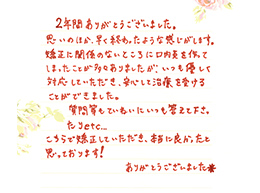 2年間ありがとうございました。
思いのほか、早く終わったような感じがします。
矯正に関係のないところに口内炎を作って
しまったことが多々ありましたが、いつも優しく
対応していただき、安心して治療を受ける
ことができました。
質問等もていねいにいつも答えて下さっ
たりetc...
こちらで矯正していただき、本当に良かったと
思っております!
ありがとうございました